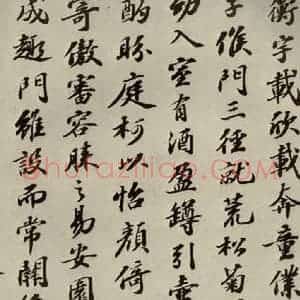 衡宇載欣載奔童僕
子候門三徑就荒松菊
幼入室有酒盈罇引壺
酌眄庭柯以怡顏倚
寄傲審容膝之易安園
成趣門雖設而常關
shufaziliao.COM